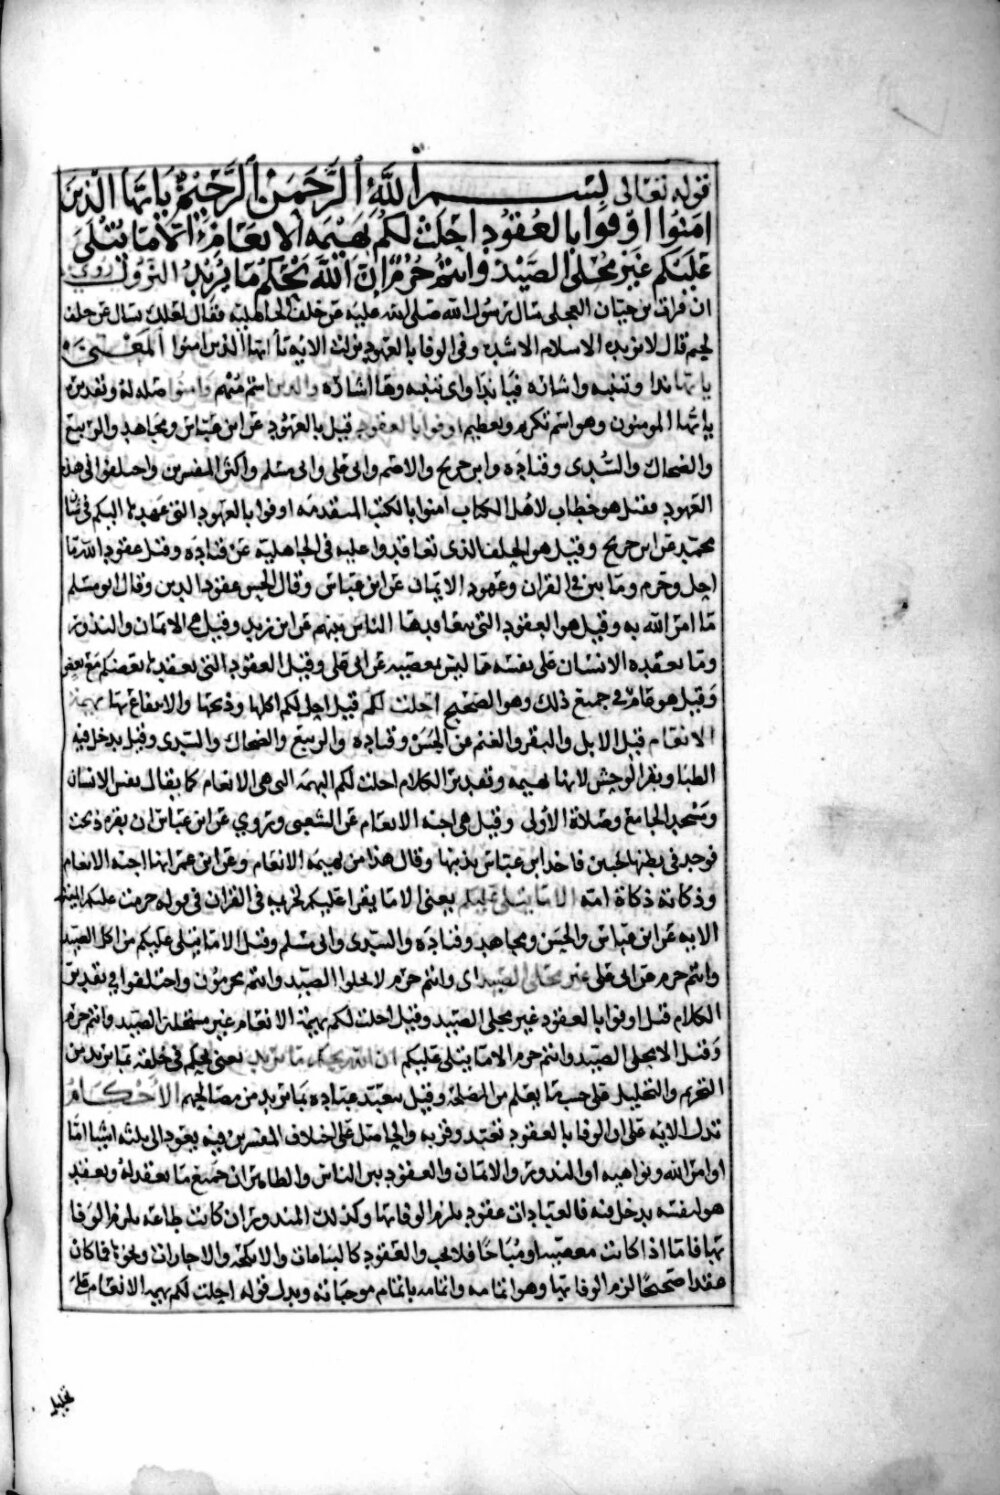 قوله تعالى بسم الله الرحمن الرحيم يا يها الذين
امنوا اوفوا بالعقود احلت لكم بهيمة الانعام الا ما يتلى
عليكم غير محلى الصيد وانتم حرم ان الله يحكم ما يريد النزول روي
ان فرات بن حيان العجلى سال رسول الله صلى الله عليه عن حلف الجاهلية فقال لعلك تسال عن حلف
لجيم قال لا يزيده الاسلام الا شده وفى الوفا بالعهود نزلت الاية يا ايها الذين امنوا المعنى
يا يها ندا وتنبيه واشاره فيا ندا واى تنبيه وها اشاره والذين اسم مبهم وامنوا صله له وتقديره
يا يها المومنون وهو اسم تكريم وتعظيم اوفوا بالعقود قيل بالعهود عن ابن عباس ومجاهد والربيع
والضحاك والسدى وقتاده وابن جريج والاصم وابى على وابى مسلم واكثر المفسرين واختلفوا فى هذه
العهود فقيل هو خطاب لاهل الكتاب امنوا بالكتب المتقدمه اوفوا بالعهود التى عهدتها اليكم فى شان
محمد عن ابن جريج وقيل هو الحلف الذى تعاقدوا عليه فى الجاهلية عن قتاده وقيل عقود الله ما
احل وحرم وما بين فى القران وعهود الايمان عن ابن عباس وقال الحسن عقود الدين وقال ابو مسلم
ما امر الله به وقيل هو العقود التى يتعاقدها الناس بينهم عن ابن زيد وقيل هى الايمان والنذور
وما يعقده الانسان على نفسه مما ليس بمعصيه عن ابى على وقيل العقود التى يعقدها بعضكم مع بعض
وقيل هو عام فى جميع ذلك وهو الصحيح احلت لكم قيل احل لكم اكلها وذبحها والانتفاع بها بهيمة
الانعام قيل الابل والبقر والغنم عن الحسن وقتاده والربيع والضحاك والسدى وقيل يدخل فيه
الظبا وبقر الوحش لانها بهيمه وتقدير الكلام احلت لكم البهيمة التى هى الانعام كما يقال نفس الانسان
ومسجد الجامع وصلاة الأولى وقيل هى اجنة الانعام عن الشعبى وروي عن ابن عباس ان بقره ذبحت
فوجد فى بطنها جنين فاخذ ابن عباس بذنبها وقال هذا من بهيمة الانعام وعن ابن عمر انها اجنه الانعام
وذكاته ذكاة امه الا ما يتلى عليكم يعنى الا ما يقرا عليكم تحريمه فى القران فى قوله حرمت عليكم الميتة
الايه عن ابن عباس والحسن ومجاهد وقتاده والسدى وابى مسلم وقيل الا ما يتلى عليكم من اكل الصيد
وانتم حرم عن ابى على غير محلى الصيد اى وانتم حرم لا تحلوا الصيد وانتم محرمون واختلفوا فى تقدير
الكلام قيل اوفوا بالعقود غير محلى الصيد وقيل احلت لكم بهيمة الانعام غير مستحلى الصيد وانتم حرم
وقيل الا محلى الصيد وانتم حرم الا ما يتلى عليكم ان الله يحكم ما يريد يعنى يحكم فى خلقه بما يريد من
التحريم والتحليل على حسب ما يعلم من المصلحة وقيل يتعبد عباده بما يريد من مصالحهم الاحكام
تدل الايه على ان الوفا بالعقود تعبد وقربه والحاصل على اختلاف المفسرين فيه يعود الى ثلثه اشيا اما
اوامر الله ونواهيه او النذور والايمان والعقود بين الناس والظاهر ان جميع ما يعقد له ويعقد
هو لنفسه يدخل فيه فالعبادات عقود يلزم الوفا بها وكذلك المنذور ان كانت طاعه يلزم الوفا
بها فاما اذا كانت معصيه او مباحا فلا يجب والعقود كالبياعات والانكحة والاجارات ونحوها فما كان
عقدا صحيحا لزم الوفا بها وهو اتمامه واتمامه باتمام موجباته ويدل قوله احلت لكم بهيمة الانعام على
تحليل